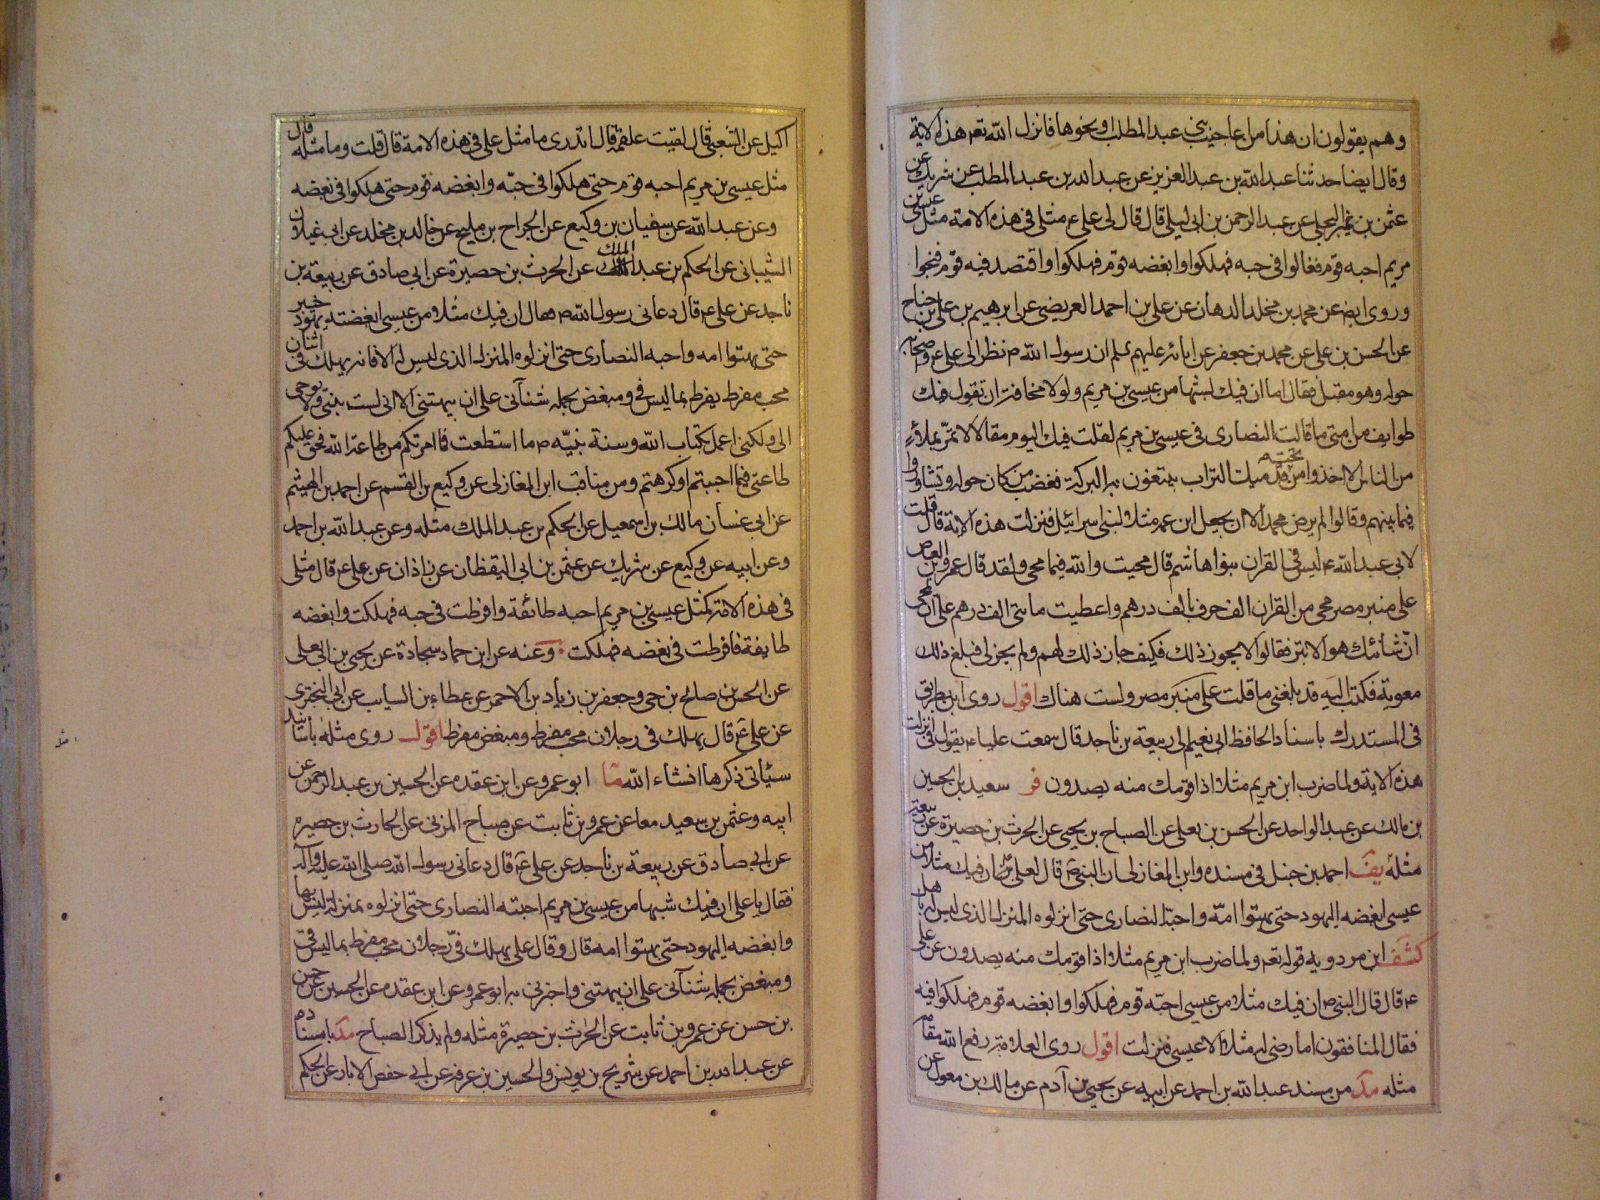 وهم يقولون ان هذا من اعاجيب بني عبد المطلب ونحو هذا فانزل الله تعه هذه الاية
وقال ايضا حدثنا عبد الله بن عبد العزيز عن عبد الله بن عبد المطلب عن شريك عن
عثمن بن نمير البجلي عن عبد الرحمن بن ابي ليلى قال قال لي علي ع مثلي في هذه الامة مثل عيسى بن
مريم احبه قوم فغالوا في حبه فهلكوا وابغضه قوم فهلكوا واقتصد فيه قوم فنجوا
وروى ايضا عن محمد بن مخلد الدهان عن علي بن احمد العريضي عن ابرهيم بن علي بن جناح
عن الحسن بن علي عن محمد بن جعفر عن ابائه عليهم ان رسول الله ص نظر الى علي ع واصحابه
حوله وهو مقبل فقال اما ان فيك لشبها من عيسى بن مريم ولولا مخافة ان تقول فيك
طوايف من امتي ما قالت النصارى في عيسى بن مريم لقلت فيك اليوم مقالا لا تمر بملاء
من الناس الا اخذوا من تحت قدميك التراب يبتغون به البركة فغضب من كان حوله وتشاوروا
فيما بينهم وقالوا لم يرض محمد الا ان يجعل ابن عمه مثلا لبني اسرائيل فنزلت هذه الاية قال قلت
لابي عبد الله ع اليس في القران بنو هاشم قال محيت والله فيما محي ولقد قال عمرو بن العاص
على منبر مصر محي من القران الف حرف بالف درهم واعطيت مائتي الف درهم على ان يمحى
ان شانئك هو الابتر فقالوا لا يجوز ذلك فكيف جاز ذلك لهم ولم يجز لي فبلغ ذلك
معوية فكتب اليه قد بلغني ما قلت على منبر مصر ولست هناك اقول روى ابن بطريق
في المستدرك باسناد الحافظ ابي نعيم الى ربيعة بن ناجد قال سمعت عليا ع يقول في انزلت
هذه الاية ولما ضرب ابن مريم مثلا اذا قومك منه يصدون فر سعيد بن الحسين
بن مالك عن عبد الواحد عن الحسن بن يعلى عن الصباح بن يحيى عن الحرث بن حصيرة عن ربيعة
مثله يف احمد بن حنبل في مسنده وابن المغازلي ان النبي ص قال لعلي ان فيك مثلا من
عيسى ابغضه اليهود حتى بهتوا امه واحبه النصارى حتى انزلوه المنزل الذي ليس له باهل
كشف ابن مردويه قوله تعه ولما ضرب ابن مريم مثلا اذا قومك منه يصدون عن علي
ع قال قال النبي ص ان فيك مثلا من عيسى احبه قوم فهلكوا وابغضه قوم فهلكوا فيه
فقال المنافقون اما رضي له مثلا الا عيسى فنزلت اقول روى العلامة رفع الله مقامه
مثله مد من مسند عبد الله بن احمد عن ابيه عن يحيى بن آدم عن مالك بن مغول عن
اكيل عن الشعبي قال لقيت علقمة قال اتدرى ما مثل علي في هذه الامة قال قلت وما مثله قال
مثل عيسى بن مريم احبه قوم حتى هلكوا في حبه وابغضه قوم حتى هلكوا في بغضه
وعن عبد الله عن سفيان بن وكيع عن الجراح بن مليح عن خالد بن مخلد عن ابي غيلان
الشيباني عن الحكم بن عبد الملك عن الحرث بن حصيرة عن ابي صادق عن ربيعة بن
ناجد عن علي ع قال دعاني رسول الله ص فقال ان فيك مثلا من عيسى ابغضته يهود خيبر
حتى بهتوا امه واحبه النصارى حتى انزلوه المنزل الذي ليس له الا فانه يهلك في اثنان
محب مفرط يفرط بما ليس في ومبغض يحمله شنآني على ان يبهتني الا اني لست بنبي ولا يوحى
الى ولكني اعمل بكتاب الله وسنة نبيه ص ما استطعت فما امرتكم من طاعة الله فحق عليكم
طاعتي فيما احببتم او كرهتم ومن مناقب ابن المغازلي عن وكيع بن القسم عن احمد بن الهيثم
عن ابي غسان مالك بن اسمعيل عن الحكم بن عبد الملك مثله وعن عبد الله بن احمد
وعن ابيه عن وكيع عن شريك عن عثمن بن ابي اليقظان عن زاذان عن علي ع قال مثلي
في هذه الامة كمثل عيسى بن مريم احبه طائفة وافرطت في حبه فهلكت وابغضه
طايفة فافرطت في بغضه فهلكت وعنه عن ابن حماد سجادة عن يحيى بن ابي يعلى
عن الحسن بن صالح بن حي وجعفر بن زياد بن الاحمر عن عطاء بن السايب عن ابي البختري
عن علي ع قال يهلك في رجلان محب مفرط ومبغض مفرط اقول روى مثله باسانيد
سيأتي ذكرها انشاء الله ما ابو عمرو عن ابن عقده عن الحسين بن عبد الرحمن عن
ابيه وعثمن بن سعيد معا عن عمرو بن ثابت عن صباح المزني عن الحارث بن حصيره
عن ابي صادق عن ربيعة بن ناجد عن علي ع قال دعاني رسول الله صلى الله عليه وآله
فقال يا علي ان فيك شبها من عيسى بن مريم احبته النصارى حتى انزلوه بمنزلة ليس بها
وابغضه اليهود حتى بهتوا امه قال وقال علي يهلك في رجلان محب مفرط بما ليس في
ومبغض يحمله شنآني على ان يبهتني واخبرني به ابو عمرو عن ابن عقده عن الحسين عن حسن
بن حسن عن عمرو بن ثابت عن الحرث بن حصيرة مثله ولم يذكر الصباح مد باسناده
عن عبد الله بن احمد عن شريح بن يونس والحسين بن عرفة عن ابي حفص الابار عن الحكم